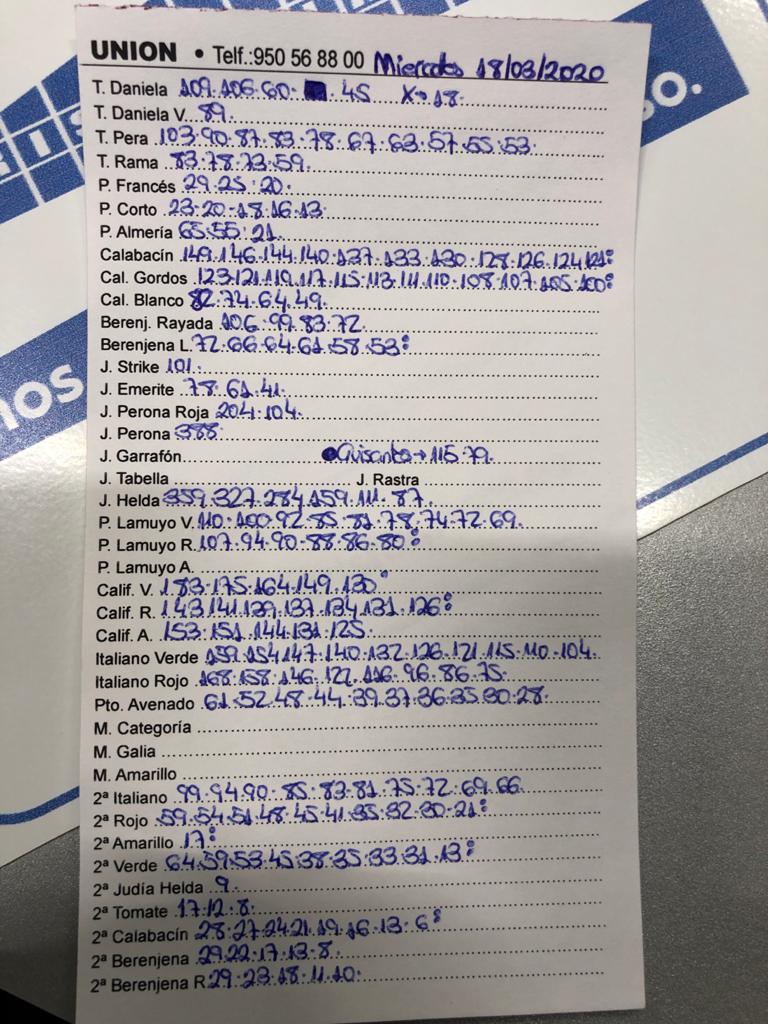 UNION • Telf.:950 56 88 00 Miercoles 18/03/2020
T. Daniela 109.106.60. 45 X→18.
T. Daniela V. 89.
T. Pera 103.90.87.83.78.67.63.57.55.53.
T. Rama 83.78.73.59.
P. Francés 29.25.20.
P. Corto 23.20.18.16.13.
P. Almería 65.55.21.
Calabacín 149.146.144.140.137.133.130.128.126.124.121:
Cal. Gordos 123.121.119.117.115.113.111.110.108.107.105.100:
Cal. Blanco 82.74.64.49.
Berenj. Rayada 106.99.83.72.
Berenjena L. 72.66.64.61.58.53:
J. Strike 101.
J. Emerite 78.61.41.
J. Perona Roja 204.104.
J. Perona 388.
J. Garrafón •Guisante→115.79.
J. Tabella J. Rastra
J. Helda 359.327.284.159.111.87.
P. Lamuyo V. 110.100.92.85.81.78.74.72.69.
P. Lamuyo R. 107.94.90.88.86.80:
P. Lamuyo A.
Calif. V. 183.175.164.149.130:
Calif. R. 143.141.139.137.134.131.126:
Calif. A. 153.151.144.131.125.
Italiano Verde 159.154.147.140.132.126.121.115.110.104.
Italiano Rojo 168.158.146.122.116.96.86.75.
Pto. Avenado 61.52.48.44.39.37.36.35.30.28.
M. Categoría
M. Galia
M. Amarillo
2ª Italiano 99.94.90.85.83.81.75.72.69.66.
2ª Rojo 59.54.51.48.45.41.35.32.30.21:
2ª Amarillo 17:
2ª Verde 64.59.53.45.38.35.33.31.13:
2ª Judía Helda 9.
2ª Tomate 17.12.8.
2ª Calabacín 28.27.24.21.19.16.13.6:
2ª Berenjena 29.22.17.13.8.
2ª Berenjena R 29.23.18.11.10.